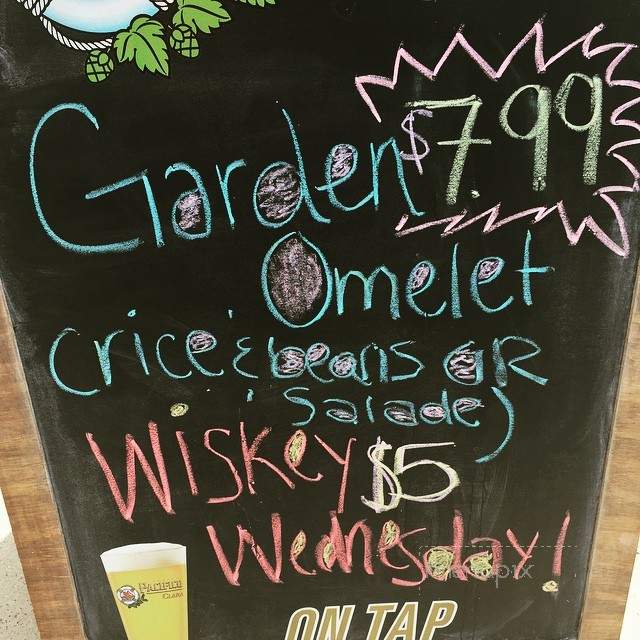 Garden $7.99
Omelet
(rice & beans OR
Salade)
Wiskey $5
Wednesday!
PACIFICO
CLARA
ON TAP